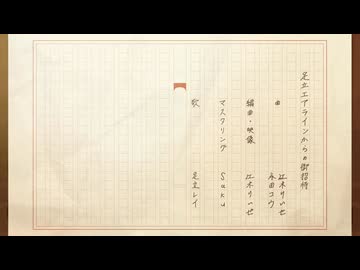 足立エアラインからの御招待
曲　江木りいせ
永田コウ
編曲・映像　江木りいせ
マスタリング　Saku
歌　足立レイ